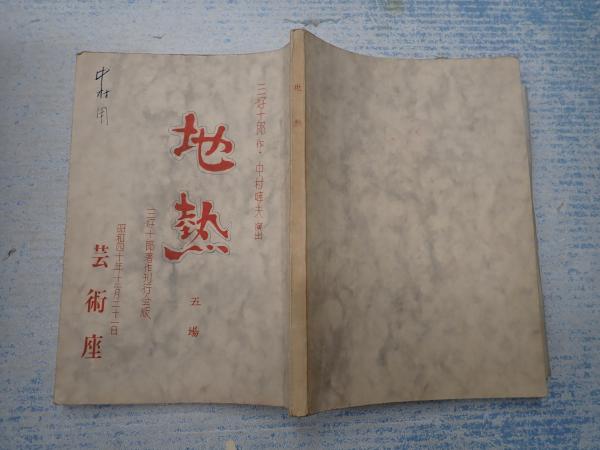 三好十郎作・中村哮夫演出
地熱
五場
三好十郎著作刊行会版
昭和四十年十一月二十一日
芸術座
中村用
地熱